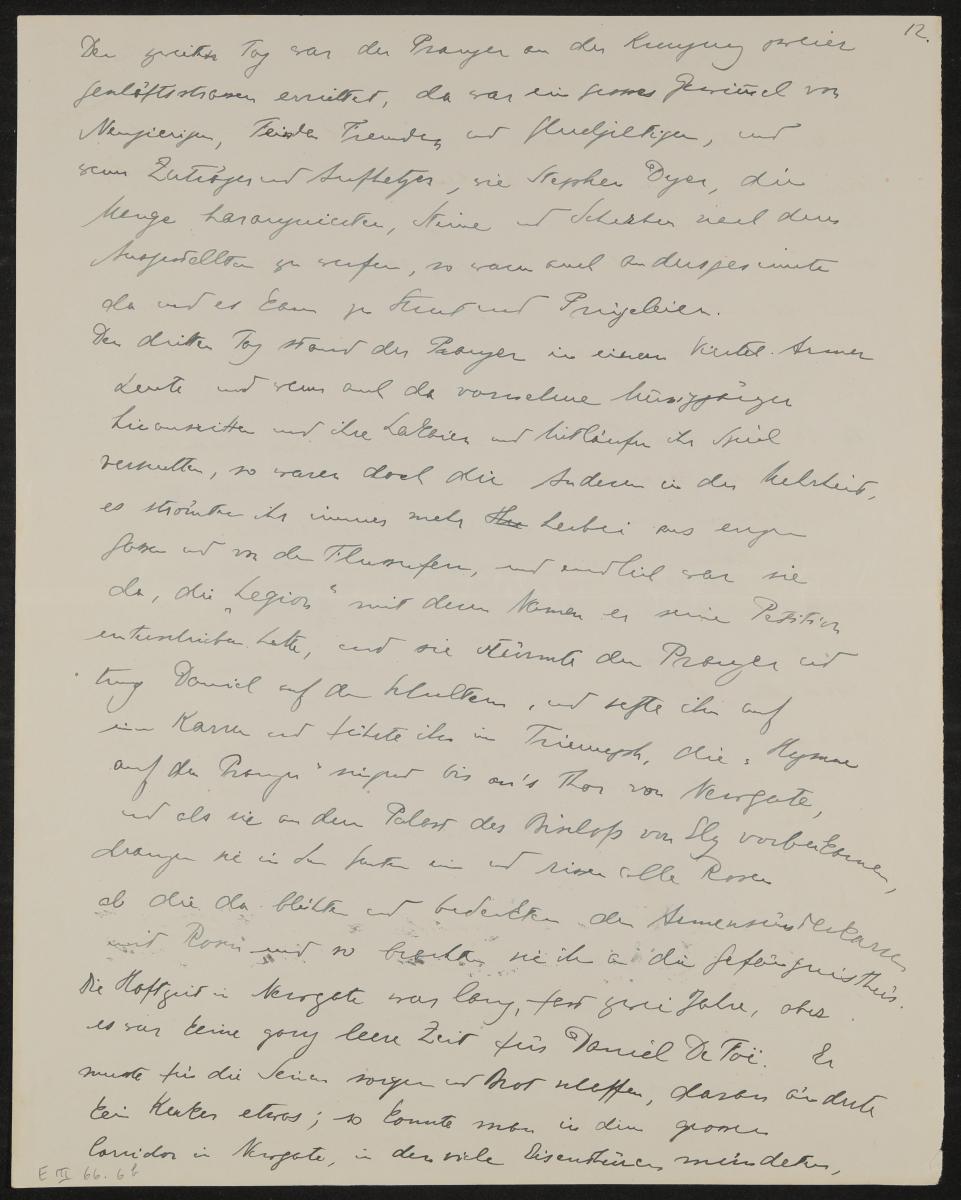 12.
Den zweiten Tag war der Pranger an der Kreuzung zweier
Geschäftsstrassen errichtet, da war ein grosses Gewimmel von
Neugierigen, Feinden Freunden und Gleichgiltigen, und
wenn Zuträger und Aufhetzer, wie Stephen Dyer, die
Menge haranguierten, Steine und Scherben nach dem
Ausgestellten zu werfen, so waren auch andersgesinnte
da und es kam zu Streit und Prügeleien.
Den dritten Tag stand der Pranger in einem Viertel Armer
Leute und wenn auch da vornehme Müssiggänger
hinausritten und ihre Lakaien und Mitläufer ihr Spiel
versuchten, so waren doch die Anderen in der Mehrheit,
es strömten ihr immer mehr herbei aus engen
Gassen und von den Flussufern, und endlich war sie
da, die „Legion“ mit deren Namen er seine Petition
unterschrieben hatte, und sie stürmte den Pranger und
trug Daniel auf den Schultern, und setzte ihn auf
einen Karren und führte ihn im Triumph, die „Hymne
auf den Pranger“ singend bis an's Thor von Newgate,
und als sie an dem Palast des Bischofs von Ely vorbeikamen,
drangen sie in den Garten ein und rissen alle Rosen
ab die da blühten und bedeckten den Armensünderkarren
mit Rosen und so brachten sie ihn an die Gefängnisthür.
Die Haftzeit in Newgate war lang, fast zwei Jahre, aber
es war keine ganz leere Zeit für Daniel De Foë. Er
musste für die Seinen sorgen und Brot schaffen, daran änderte
kein Kerker etwas; so konnte man in dem grossen
Corridor in Newgate, in den viele Eisenthüren mündeten,
E III 66. 6b